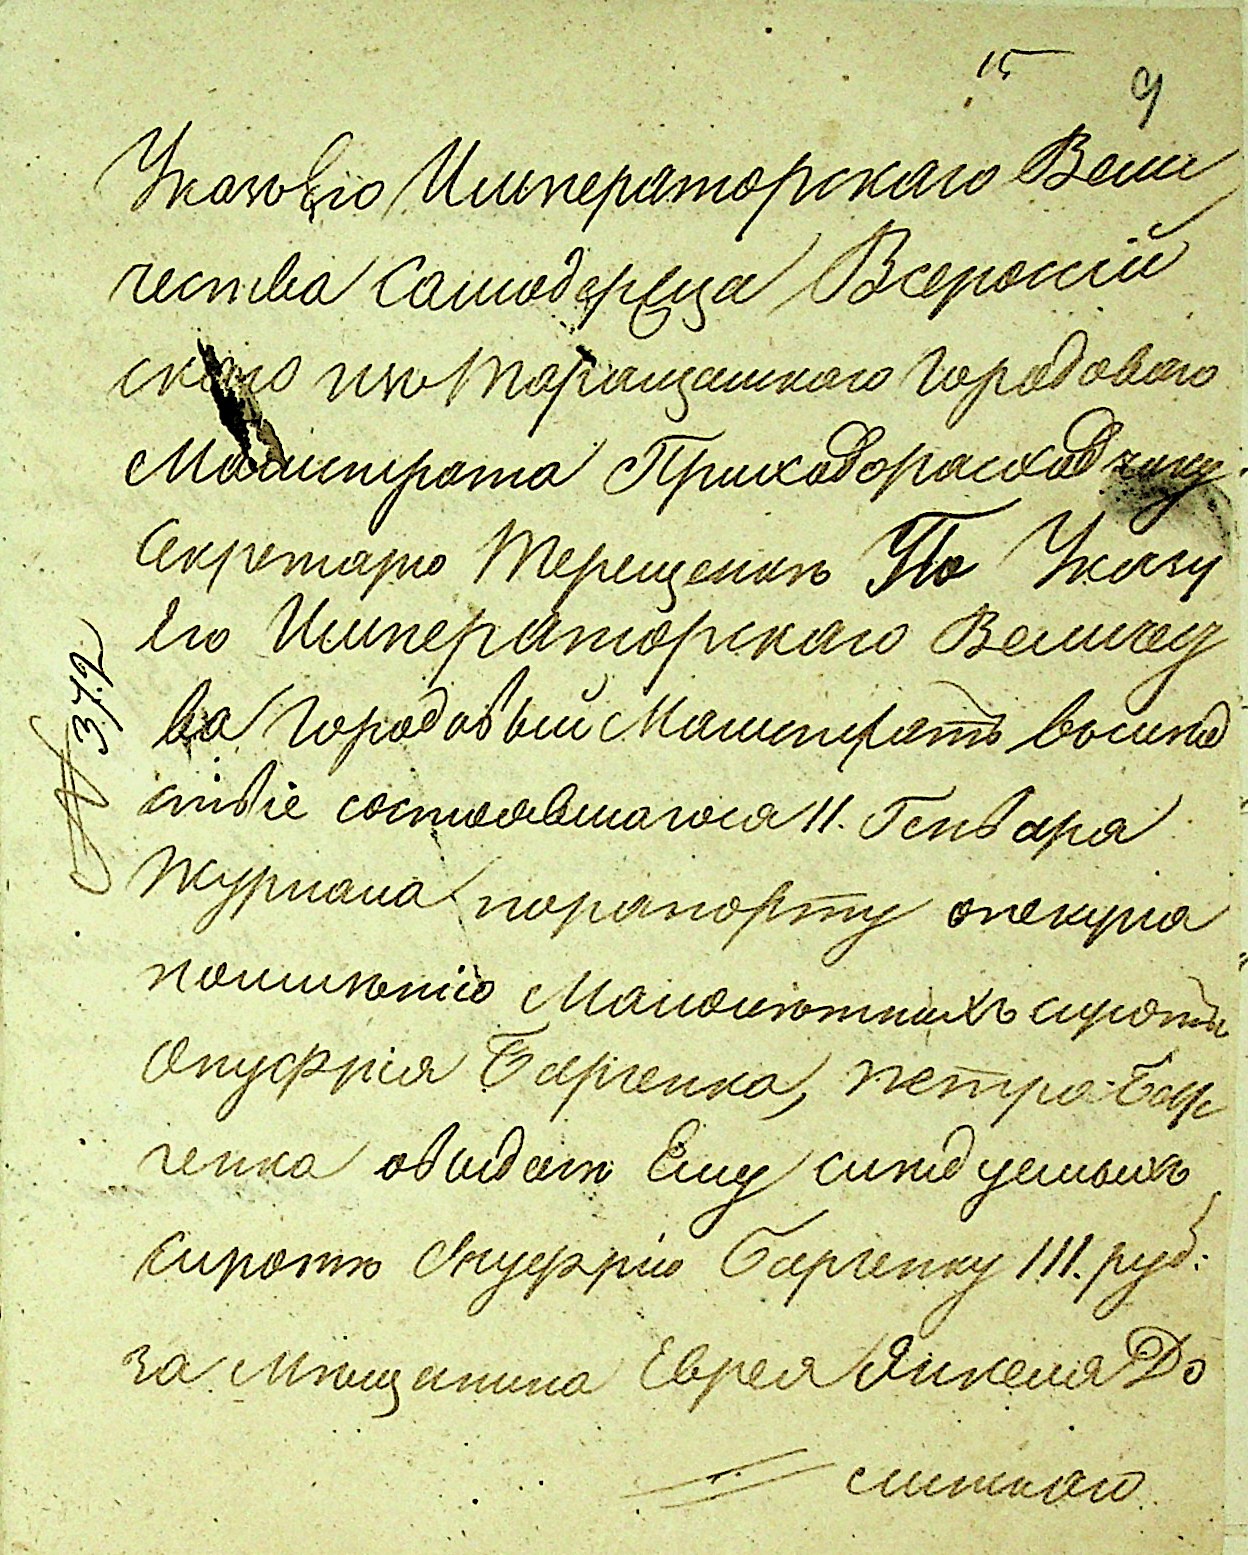 15
9
Указъ Его Императорскаго Вели
чества Самодержца Всероссій
скаго изъ Таращанскаго Городоваго
Магистрата Приходорасходчику
Секретарю Терещенкѣ По Указу
Его Императорскаго Величест
ва Городовый Магистратъ вслѣд
ствіе состоявшагося 11. Генваря
Журнала порапорту опекуна
помѣнію Малолѣтныхъ сиротъ
Онуфрія Барченка, Петра Бар
ченка овыдачѣ Ему слѣдуемыхъ
сиротѣ Онуфрію Барченку 111. руб:
за Мѣщанина Еврея Янкеля До
линскаго
№ 372